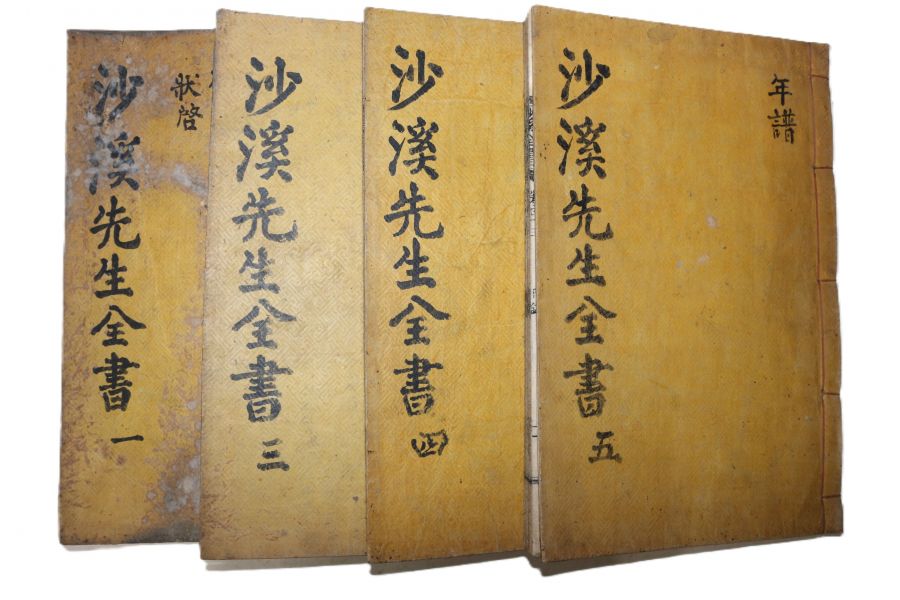 沙溪先生全書 一
狀啓
沙溪先生全書 三
沙溪先生全書 四
沙溪先生全書 五
年譜